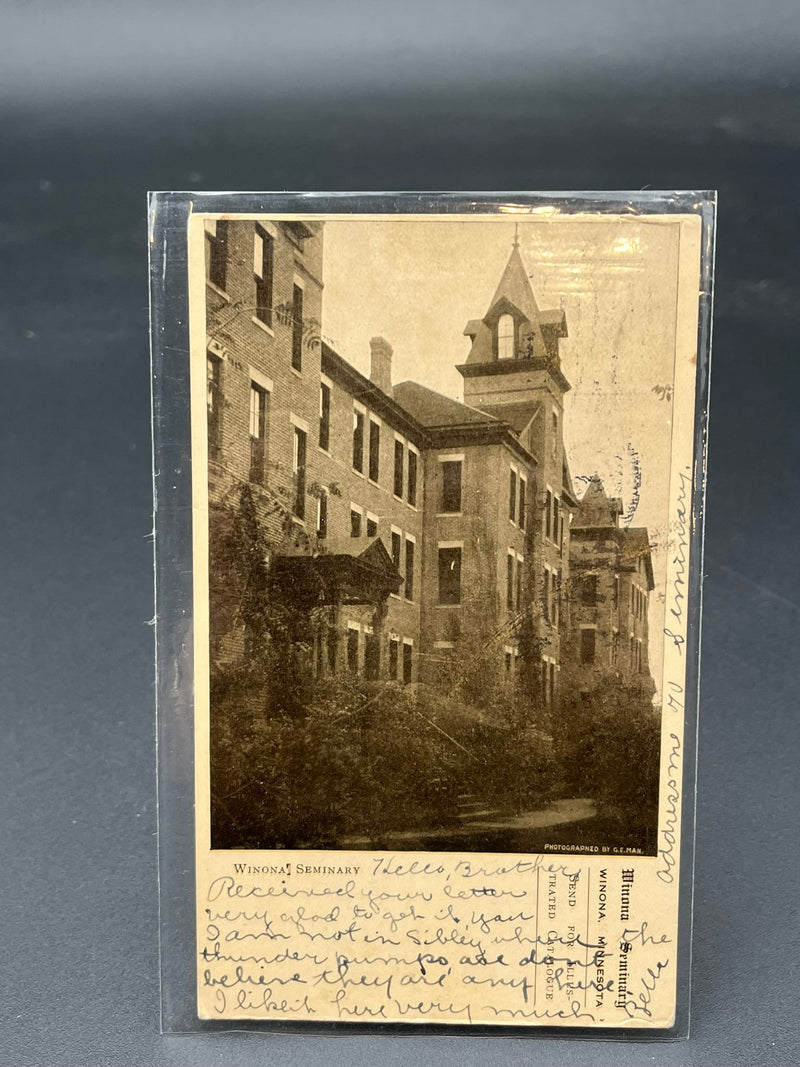 PHOTOGRAPHED BY G.E.MAN.
WINONA SEMINARY
Hello, Brother,
Received your letter
very glad to get it, you
I am not in Sibley, where the
thunder pumps are don't
believe they are any here
I like it here very much.
Addressome to Seminary.
Winona Seminary
WINONA, MINNESOTA
SEND FOR ILLUS-
TRATED CATALOGUE